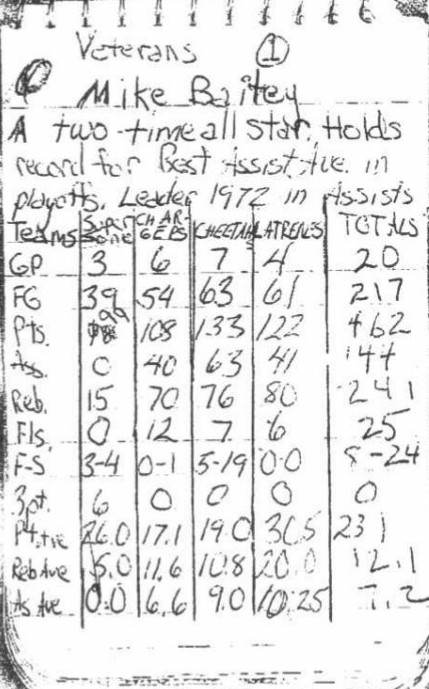 Veterans ①
Mike Bailey
A two-time all star, Holds
record for Best Assist Ave. in
playoffs, Leader 1972 in Assists
Teams Super Sone CHARGERS CHEETAH LATRENES TOTALS
GP 3 6 7 4 20
FG 39 54 63 61 217
Pts. 99 108 133 122 462
Ass. 0 40 63 41 144
Reb. 15 70 76 80 241
Fls. 0 12 7 6 25
F-S 3-4 0-1 5-19 0-0 8-24
3pt. 6 0 0 0 0
Pt. Ave 26.0 17.1 19.0 30.5 23.1
Reb Ave 5.0 11.6 10.8 20.0 12.1
As Ave 0.0 6.6 9.0 10.25 7.2